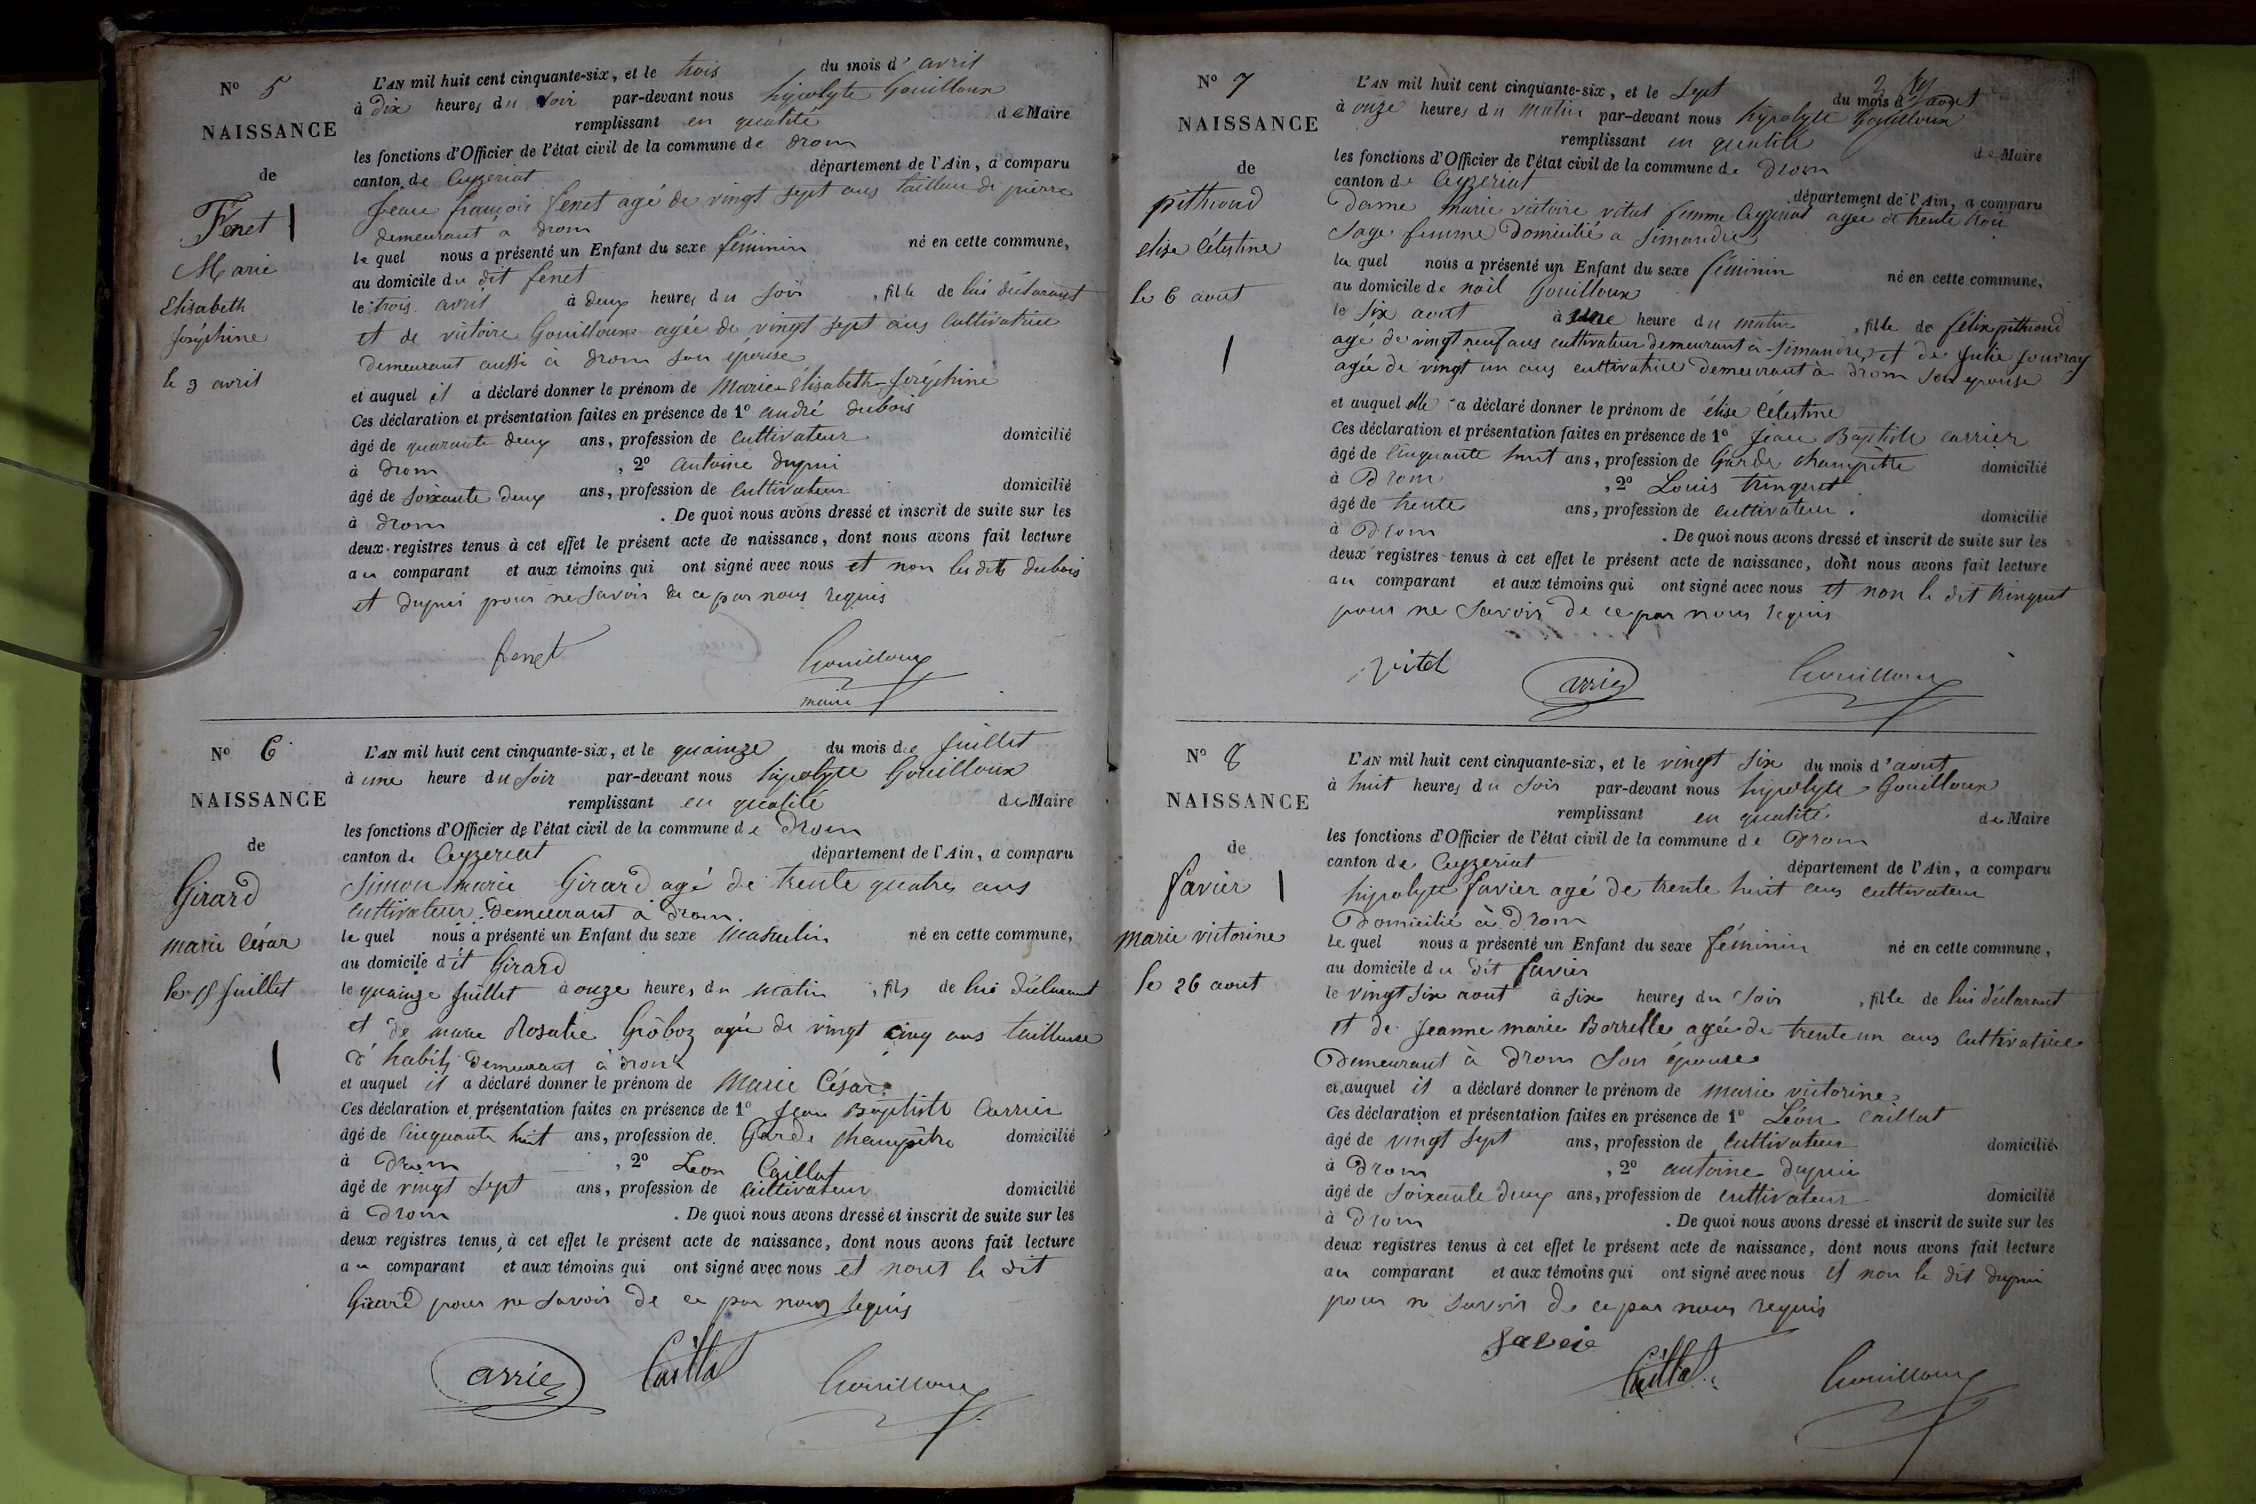 N° 5
NAISSANCE
de
Fenet
Marie
Elisabeth
Joséphine
le 3 avril
L'AN mil huit cent cinquante-six, et le trois du mois d'avril
à dix heures du soir par-devant nous hipolyte Gouilloux
remplissant en qualité de Maire
les fonctions d'Officier de l'état civil de la commune de drom
canton de Ceyzeriat département de l'Ain, a comparu
Jean françois fenet agé de vingt sept ans tailleur de pierre
demeurant a drom
le quel nous a présenté un Enfant du sexe féminin né en cette commune,
au domicile du dit fenet
le trois avril à deux heures du soir , fille de lui déclarant
et de victoire Gouilloux agée de vingt sept ans cultivatrice
demeurant aussi à drom son épouse
et auquel il a déclaré donner le prénom de Marie Elisabeth Joséphine
Ces déclaration et présentation faites en présence de 1° andré dubois
âgé de quarante deux ans, profession de cultivateur domicilié
à drom , 2° antoine dupui
âgé de soixante deux ans, profession de cultivateur domicilié
à drom . De quoi nous avons dressé et inscrit de suite sur les
deux registres tenus à cet effet le présent acte de naissance, dont nous avons fait lecture
au comparant et aux témoins qui ont signé avec nous et non les dits dubois
et dupui pour ne savoir de ce par nous requis
fenet Gouilloux
maire
N° 6
NAISSANCE
de
Girard
marie César
le 15 juillet
L'AN mil huit cent cinquante-six, et le quainze du mois de Juillet
à une heure du soir par-devant nous hipolyte Gouilloux
remplissant en qualité de Maire
les fonctions d'Officier de l'état civil de la commune de Drom
canton de Ceyzeriat département de l'Ain, a comparu
Simon marie Girard agé de trente quatre ans
cultivateur demeurant à drom.
le quel nous a présenté un Enfant du sexe masculin né en cette commune,
au domicile dit Girard
le quainze Juillet à onze heures du matin , fils de lui déclarant
et de marie Rosalie Gròboz agée de vingt cinq ans tailleuse
d'habits demeurant à drom
et auquel il a déclaré donner le prénom de Marie César
Ces déclaration et présentation faites en présence de 1° Jean Baptiste Carrier
âgé de cinquante huit ans, profession de Garde champêtre domicilié
à Drom , 2° Leon Caillat
âgé de vingt sept ans, profession de cultivateur domicilié
à Drom . De quoi nous avons dressé et inscrit de suite sur les
deux registres tenus, à cet effet le présent acte de naissance, dont nous avons fait lecture
au comparant et aux témoins qui ont signé avec nous et nont le dit
Girard pour ne savoir de ce par nous requis
Carrier Caillat Gouilloux
N° 7
NAISSANCE
de
pithioud
elise Célestine
le 6 aout
L'AN mil huit cent cinquante-six, et le sept du mois d'aout
à onze heures du matin par-devant nous hipolyte Gouilloux
remplissant en qualité de Maire
les fonctions d'Officier de l'état civil de la commune de Drom
canton de Ceyzeriat département de l'Ain, a comparu
Dame marie victoire vitat femme Ceyzeriat agée de trente trois
sage femme domicilié a simandre
la quel nous a présenté un Enfant du sexe féminin né en cette commune,
au domicile de noël Gouilloux
le six aout à une heure du matin , fille de félix pithioud
agé de vingt neuf ans cultivateur demeurant à simandre et de Julie Jouvray
agée de vingt un ans cultivatrice demeurant à drom son épouse
et auquel elle a déclaré donner le prénom de élise Célestine
Ces déclaration et présentation faites en présence de 1° Jean Baptiste carrier
âgé de cinquante huit ans, profession de Garde champêtre domicilié
à Drom , 2° Louis tringuet
âgé de trente ans, profession de cultivateur domicilié
à Drom . De quoi nous avons dressé et inscrit de suite sur les
deux registres tenus à cet effet le présent acte de naissance, dont nous avons fait lecture
au comparant et aux témoins qui ont signé avec nous et non le dit tringuet
pour ne savoir de ce par nous requis
Carrier Gouilloux
N° 8
NAISSANCE
de
favier
marie victorine
le 26 aout
L'AN mil huit cent cinquante-six, et le vingt six du mois d'aout
à huit heures du soir par-devant nous hipolyte Gouilloux
remplissant en qualité de Maire
les fonctions d'Officier de l'état civil de la commune de Drom
canton de Ceyzeriat département de l'Ain, a comparu
hipolyte favier agé de trente huit ans cultivateur
Domicilié à Drom
le quel nous a présenté un Enfant du sexe féminin né en cette commune,
au domicile du dit favier
le vingt six aout à six heures du soir , fille de lui déclarant
et de Jeanne marie Borrelle agée de trente un ans cultivatrice
Demeurant à Drom son épouse
et auquel il a déclaré donner le prénom de marie victorine
Ces déclaration et présentation faites en présence de 1° Léon Caillat
âgé de vingt sept ans, profession de cultivateur domicilié
à Drom , 2° antoine dupui
âgé de soixante deux ans, profession de cultivateur domicilié
à Drom . De quoi nous avons dressé et inscrit de suite sur les
deux registres tenus à cet effet le présent acte de naissance, dont nous avons fait lecture
au comparant et aux témoins qui ont signé avec nous et non le dit dupui
pour ne savoir de ce par nous requis
favie
Caillat Gouilloux